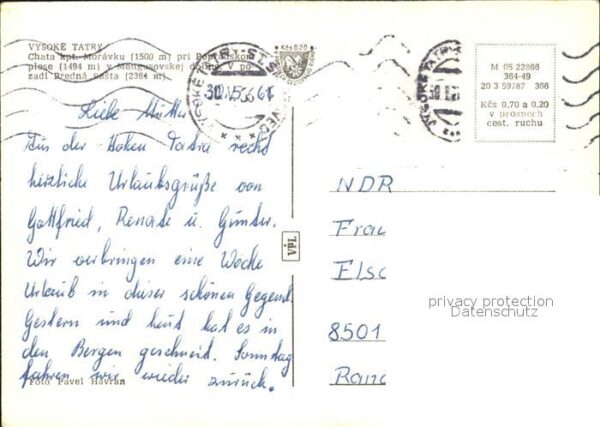 VYSOKÉ TATRY
Chata kpt. Morávku (1500 m) pri Popradskom
plese (1494 m) v Mengusovskej doline. V po-
zadí Predná Bašta (2364 m).
Kčs 0,70
M 05 22868
364-49
20 3 59787 366
Kčs 0,70 a 0,20
v prospech
cest. ruchu
Liebe Mutter
Aus der Hohen Tatra recht
herzliche Urlaubsgrüße von
Gottfried, Renate u. Günter.
Wir verbringen eine Woche
Urlaub in dieser schönen Gegend.
Gestern und heut hat es in
den Bergen geschneit. Sonntag
fahren wir wieder zurück.
Foto Pavel Havran
VPL
NDR
Frau
Elsc
8501
privacy protection
Datenschutz